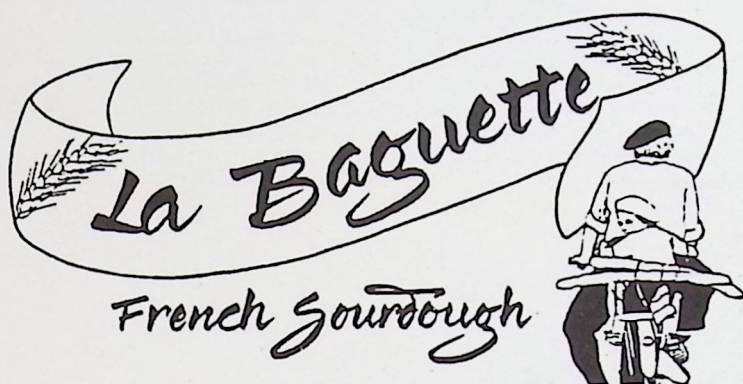 La Baguette
French Sourdough